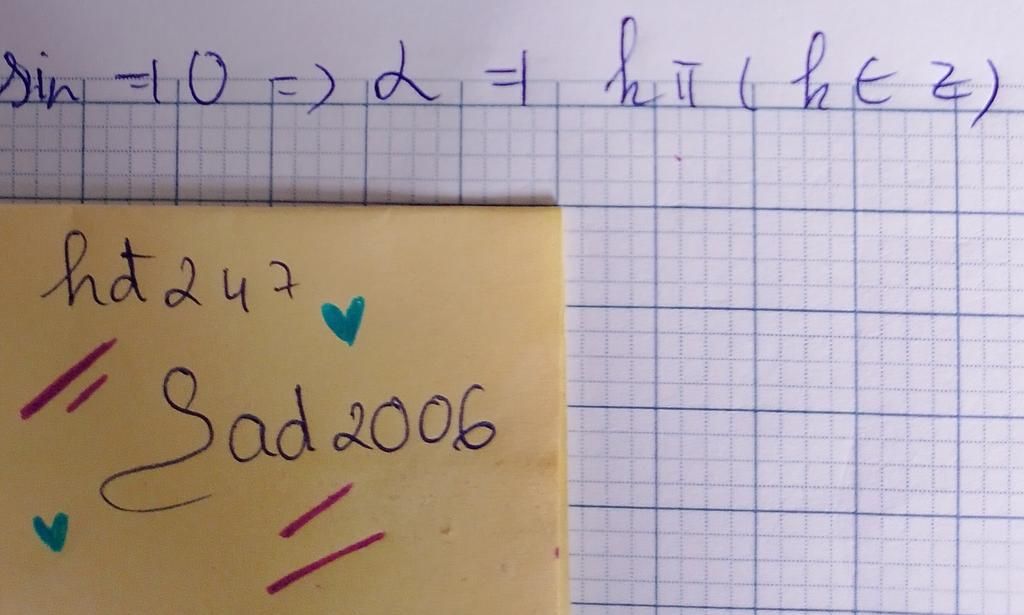 sin = 0 => α = kπ (k ∈ Z)
hdt247
Sad2006